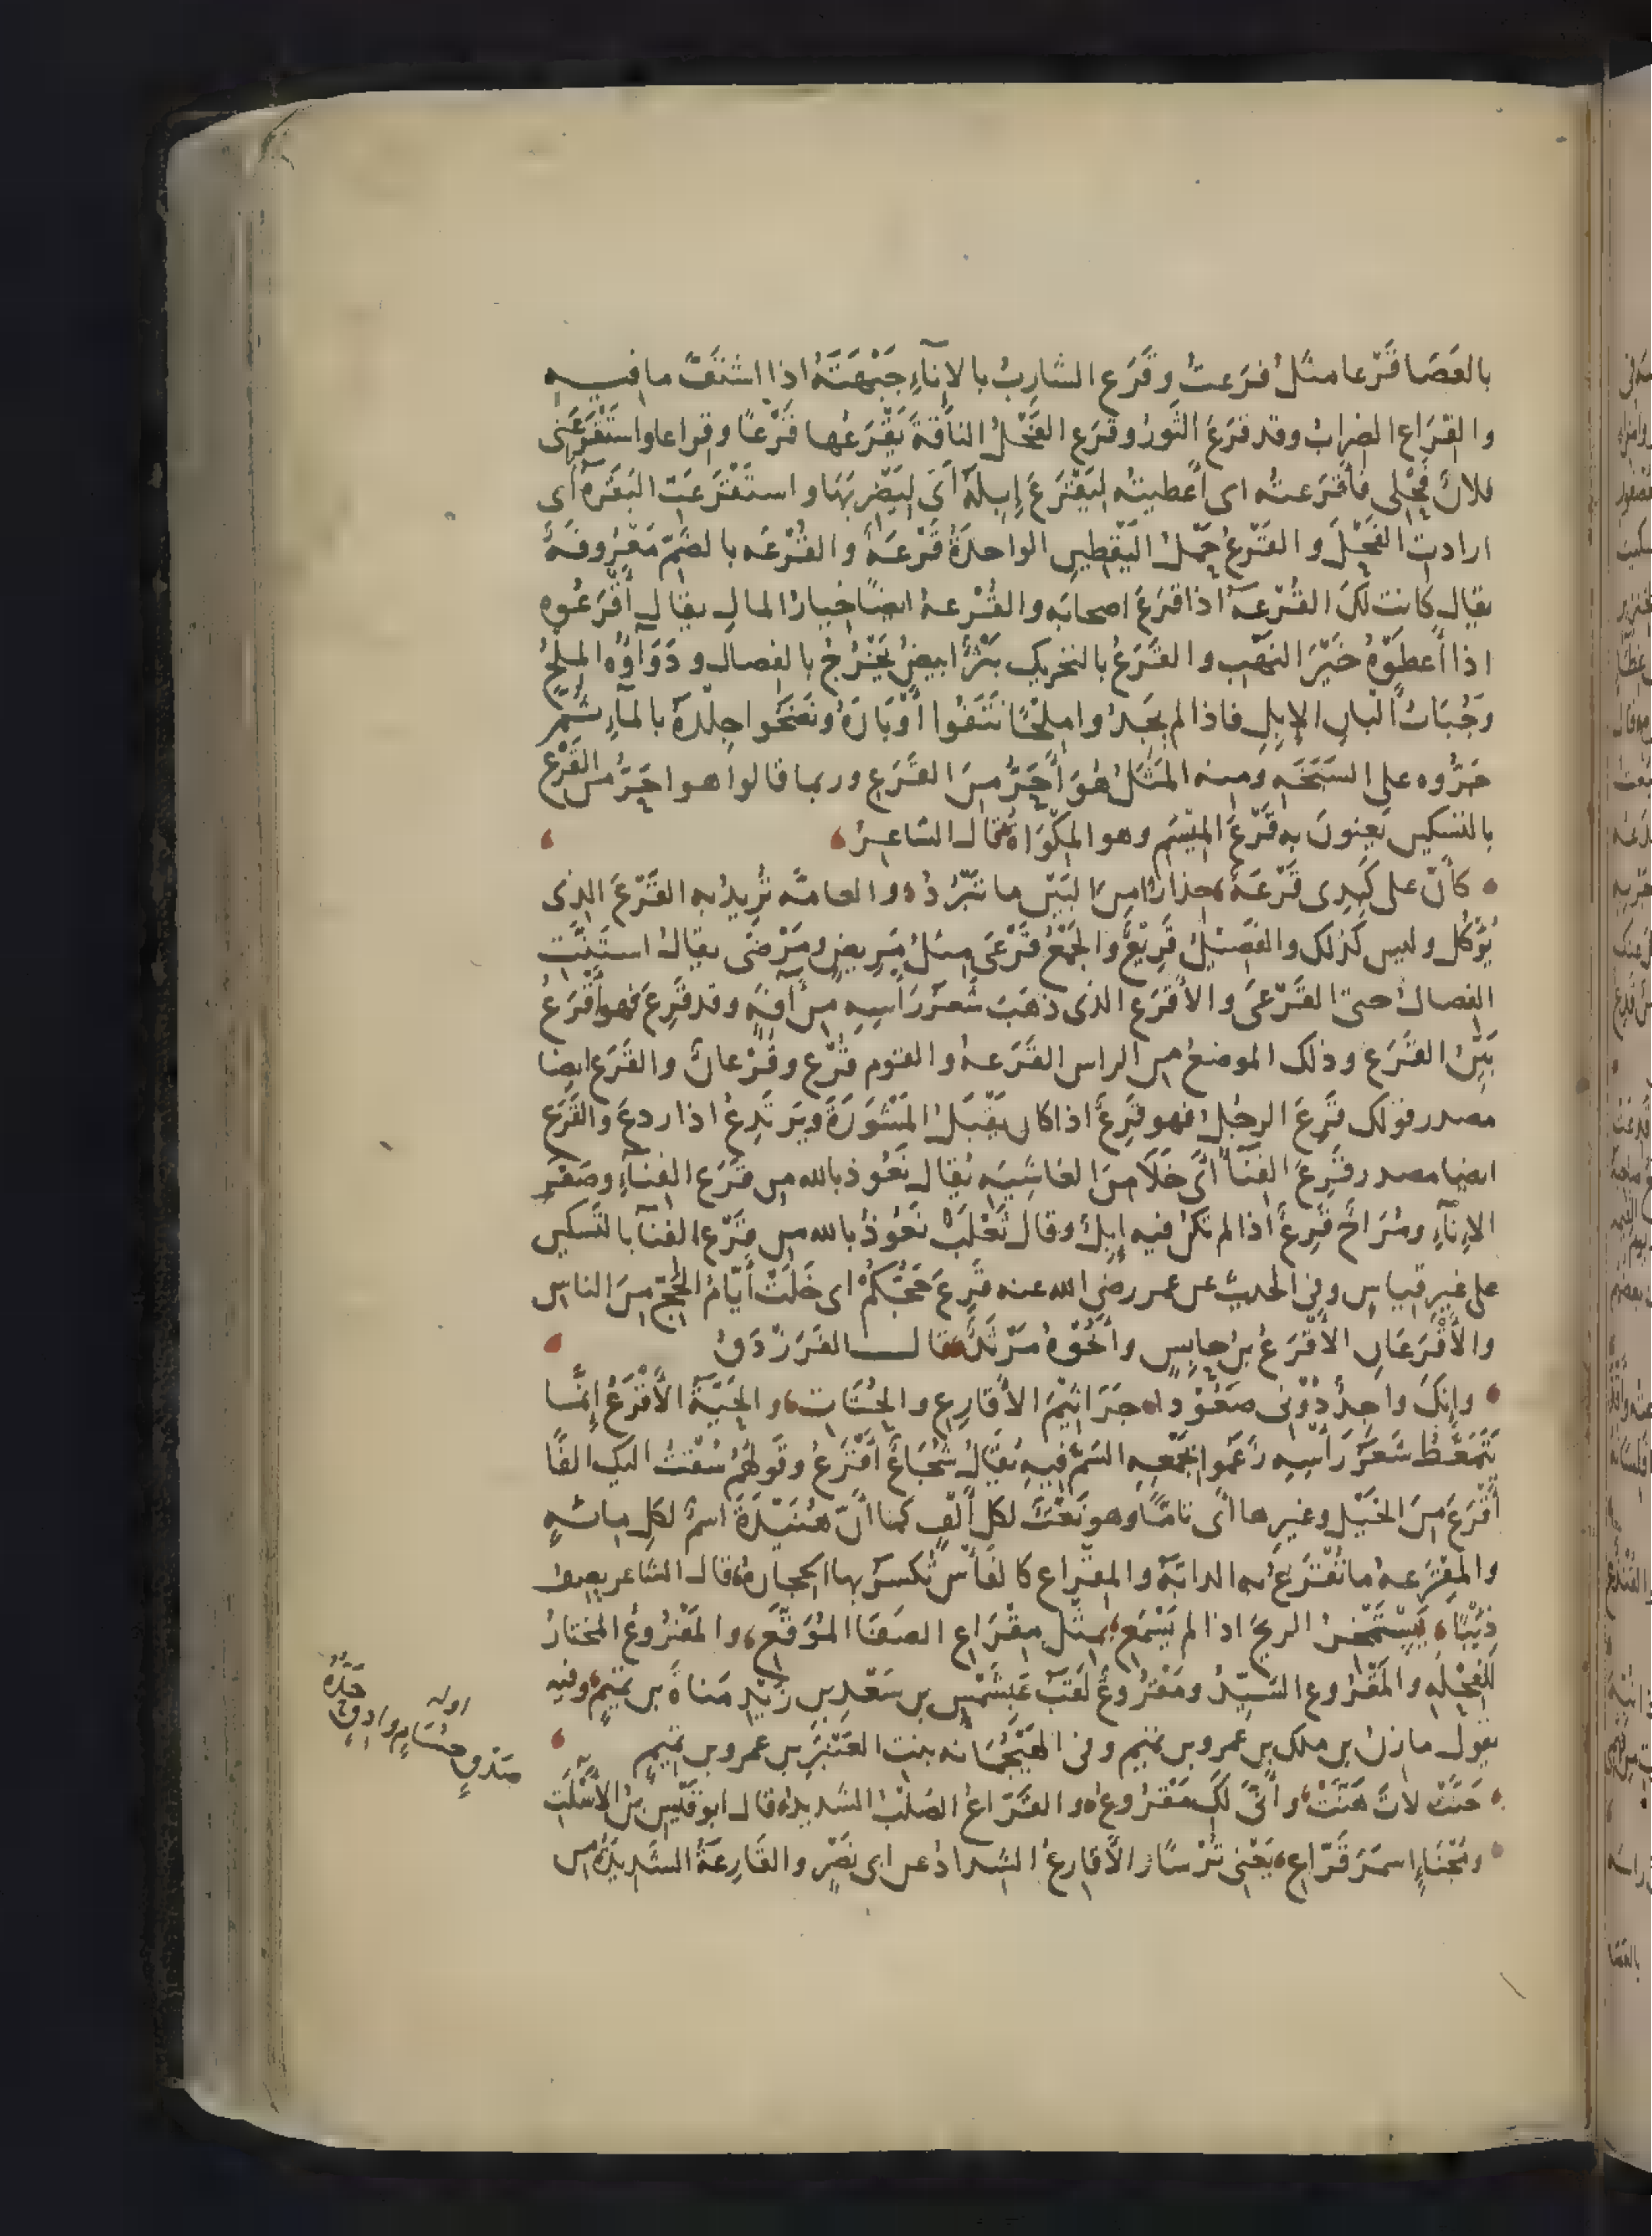 بالعَصَا قَرْعا مثلُ فرعتُ وقَرَع الشاربُ بالإناءِ جَبْهَتَهُ اذا اشتفَّ ما فيه
والقِرَاع الضرابُ وقد قرَعَ الثورُ وقرَع الفَحْلُ الناقةَ يَقْرَعُها قَرْعًا وقراعا واستَقْرَعَنى
فلانٌ فَحْلى فأقْرَعتُه اى أعطيتُه لِيَقْرَعَ إبِلَهُ أَىْ لِيَضْرِبَهَا واستَقْرَعَتِ البَقَرة أى
ارادتِ الفَحْلَ والقَرْعُ حَمْلُ اليَقْطِينِ الواحدةُ قَرْعَةٌ والقُرْعَه بالضَمِّ مَعْرُوفَةٌ
يقال كانت لكَ القُرْعَةُ اذا قرَعَ اصحابَه والقُرْعةُ ايضًا خيارُ المالِ يقال أَقْرَعُوه
اذا أَعطَوْهُ خَيْرَ النَهْبِ والقَرَعُ بالتحريك بَثْرٌ ابيضُ يَخْرُجُ بالفصال ودَوَآؤُه المِلْحُ
وجُبَابُ أَلْبانِ الإبِلِ فاذا لم يَجِدُوا مِلْحًا نَتَفُوا أَوْبَارَهُ ونَضَحُوا جِلْدَهُ بالمآءِ ثُمَّ
جَرُّوه على السَبَخَه ومنه المَثَلُ هُوَ أَحَرُّ مِنَ القَرَعِ وربما قالوا هو احَرُّ من القَرْعِ
بالتسكين يَعنونَ به قَرْعَ المِيْسَمِ وهو المِكْوَاةُ قال الشاعرُ
كأَنَّ على كَبِدِى قَرْعَةً حذارًا مِنَ البَيْنِ ما تَبْرُدُ والعامّه تُرِيدُ به القَرْعَ الذى
يُؤْكل وليس كذلك والفَصيْلُ قَرِيْعٌ والجَمْعُ قَرْعَى مثلُ مَرِيضٍ ومَرْضَى يقال استَنَّتِ
الفصالُ حتى القَرْعَى والأَقرَع الذى ذهَبَ شَعَرُ رَأسِهِ مِنْ آفَةٍ وقد قَرِعَ فهو أَقْرَعُ
بَيِّنُ القَرَعِ وذلك الموضعُ من الراس القَرَعةُ والقوم قُرْع وقُرْعانٌ والقَرَع ايضا
مصدر قولك قَرِعَ الرجُلُ فهو قَرِعٌ اذا كان يَقْبَلُ المَشْوَرَةَ ويَرْتَدِعُ اذا ردعَ والقَرَع
ايضا مصدر قَرِعَ الفِنَآءُ أَىْ خَلَا مِنَ الغاشِيَه يُقال نَعُوذ بالله من قَرَع الفِنآءِ وصَفَرِ
الإِنآءِ ومُرَاحٌ قَرِعٌ اذا لم تكن فيه إبِلٌ وقال ثَعْلَبٌ نَعُوذُ بالله من قَرْع الفنآ بالتسكين
على غيرِ قياسٍ وفى الحديث عن عمر رضى الله عنه قَرِعَ حَجُّكُمْ اى خَلَتْ أَيّامُ الحَجِّ مِنَ الناس
والأَقْرَعَانِ الأَقْرَعُ بن حابِسٍ وأَخُوهُ مَرْثَدٌ قال الفَرَزْدَقُ
وإنكَ واجدٌ دُوْنى صَعُوْدا جَرَاثِيْمَ الأَقارِعِ والحُتَاتِ والحَيَّةُ الأَقْرَعُ إنَّما
يَتَمَعَّطُ شَعَرُ رَأسِهِ زَعَموا لجمْعِهِ السَمَّ فِيهِ يُقالُ شُجَاعٌ أَقْرَعُ وقَولهُم سُقتُ اليك الفًا
أَقْرَعَ مِنَ الخَيْلِ وغيرِها أَى تامًّا وهو نَعْتٌ لكل أَلْفٍ كما أنَّ هُنَيْدَةَ اسمٌ لكلِ مائةٍ
والمِقْرَعهُ ما تُقْرَعُ به الدابَّةُ والمِقْراع كالفَأسِ تُكسَرُ بها الحجارةُ قال الشاعر يصِف
ذِئبًا يَسْتَمْخِرُ الريحَ اذا لم يَسْمَعِ بمِثْلِ مِقْرَاعِ الصَفَا المُوَقَّعِ والمَقْرُوعُ المختارُ
لِلْفِحْلِهِ والمَقْرُوع السَيِّدُ ومَقْرُوعٌ لَقَبُ عَبْشَمْسِ بن سَعْدِ بن زَيْدِ مَناةَ بن تميمٍ وفيه
يقول مازنُ بن ملك بن عمرو بن تميم وفى الهَيْجُمَانه بنتِ العَنْبَرِ بن عمرو بن تميمٍ
حَنَّتْ لاتَ هَنَّتْ وأَنَّى لَكِ مَقْرُوعُ والقَرَّاعُ الصُلْبُ الشديدُ قال ابو قَيْسِ بنُ الأَسْلَتِ
ومُجْنَاءٍ اسمرَ قَرّاعِ يَعْنى تُرْسًا والأَقارِعُ الشدادُ عن ابى نَصْرٍ والقَارِعَةُ الشديدةُ من
اوله
صَدْقٍ حُسَامٍ وادِقٍ حَدُّهُ